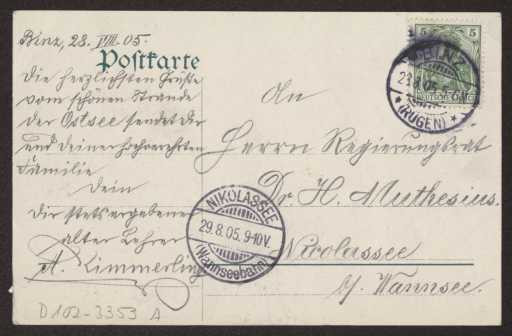 Binz, 28. VIII. 05.
Postkarte
Die herzlichsten Grüße
vom schönen Strande
der Ostsee sendet Dir
und Deiner hochverehrten
Familie
Dein
Dir stets ergebener
alter Lehrer
A. Kimmerling
An
Herrn Regierungsrat
Dr. H. Muthesius.
Nicolassee
b/ Wannsee.
5 5
BINZ
* (RÜGEN) *
NIKOLASSEE
29.8.05. 9-10V.
(Wannseebahn)
D102-3353 A